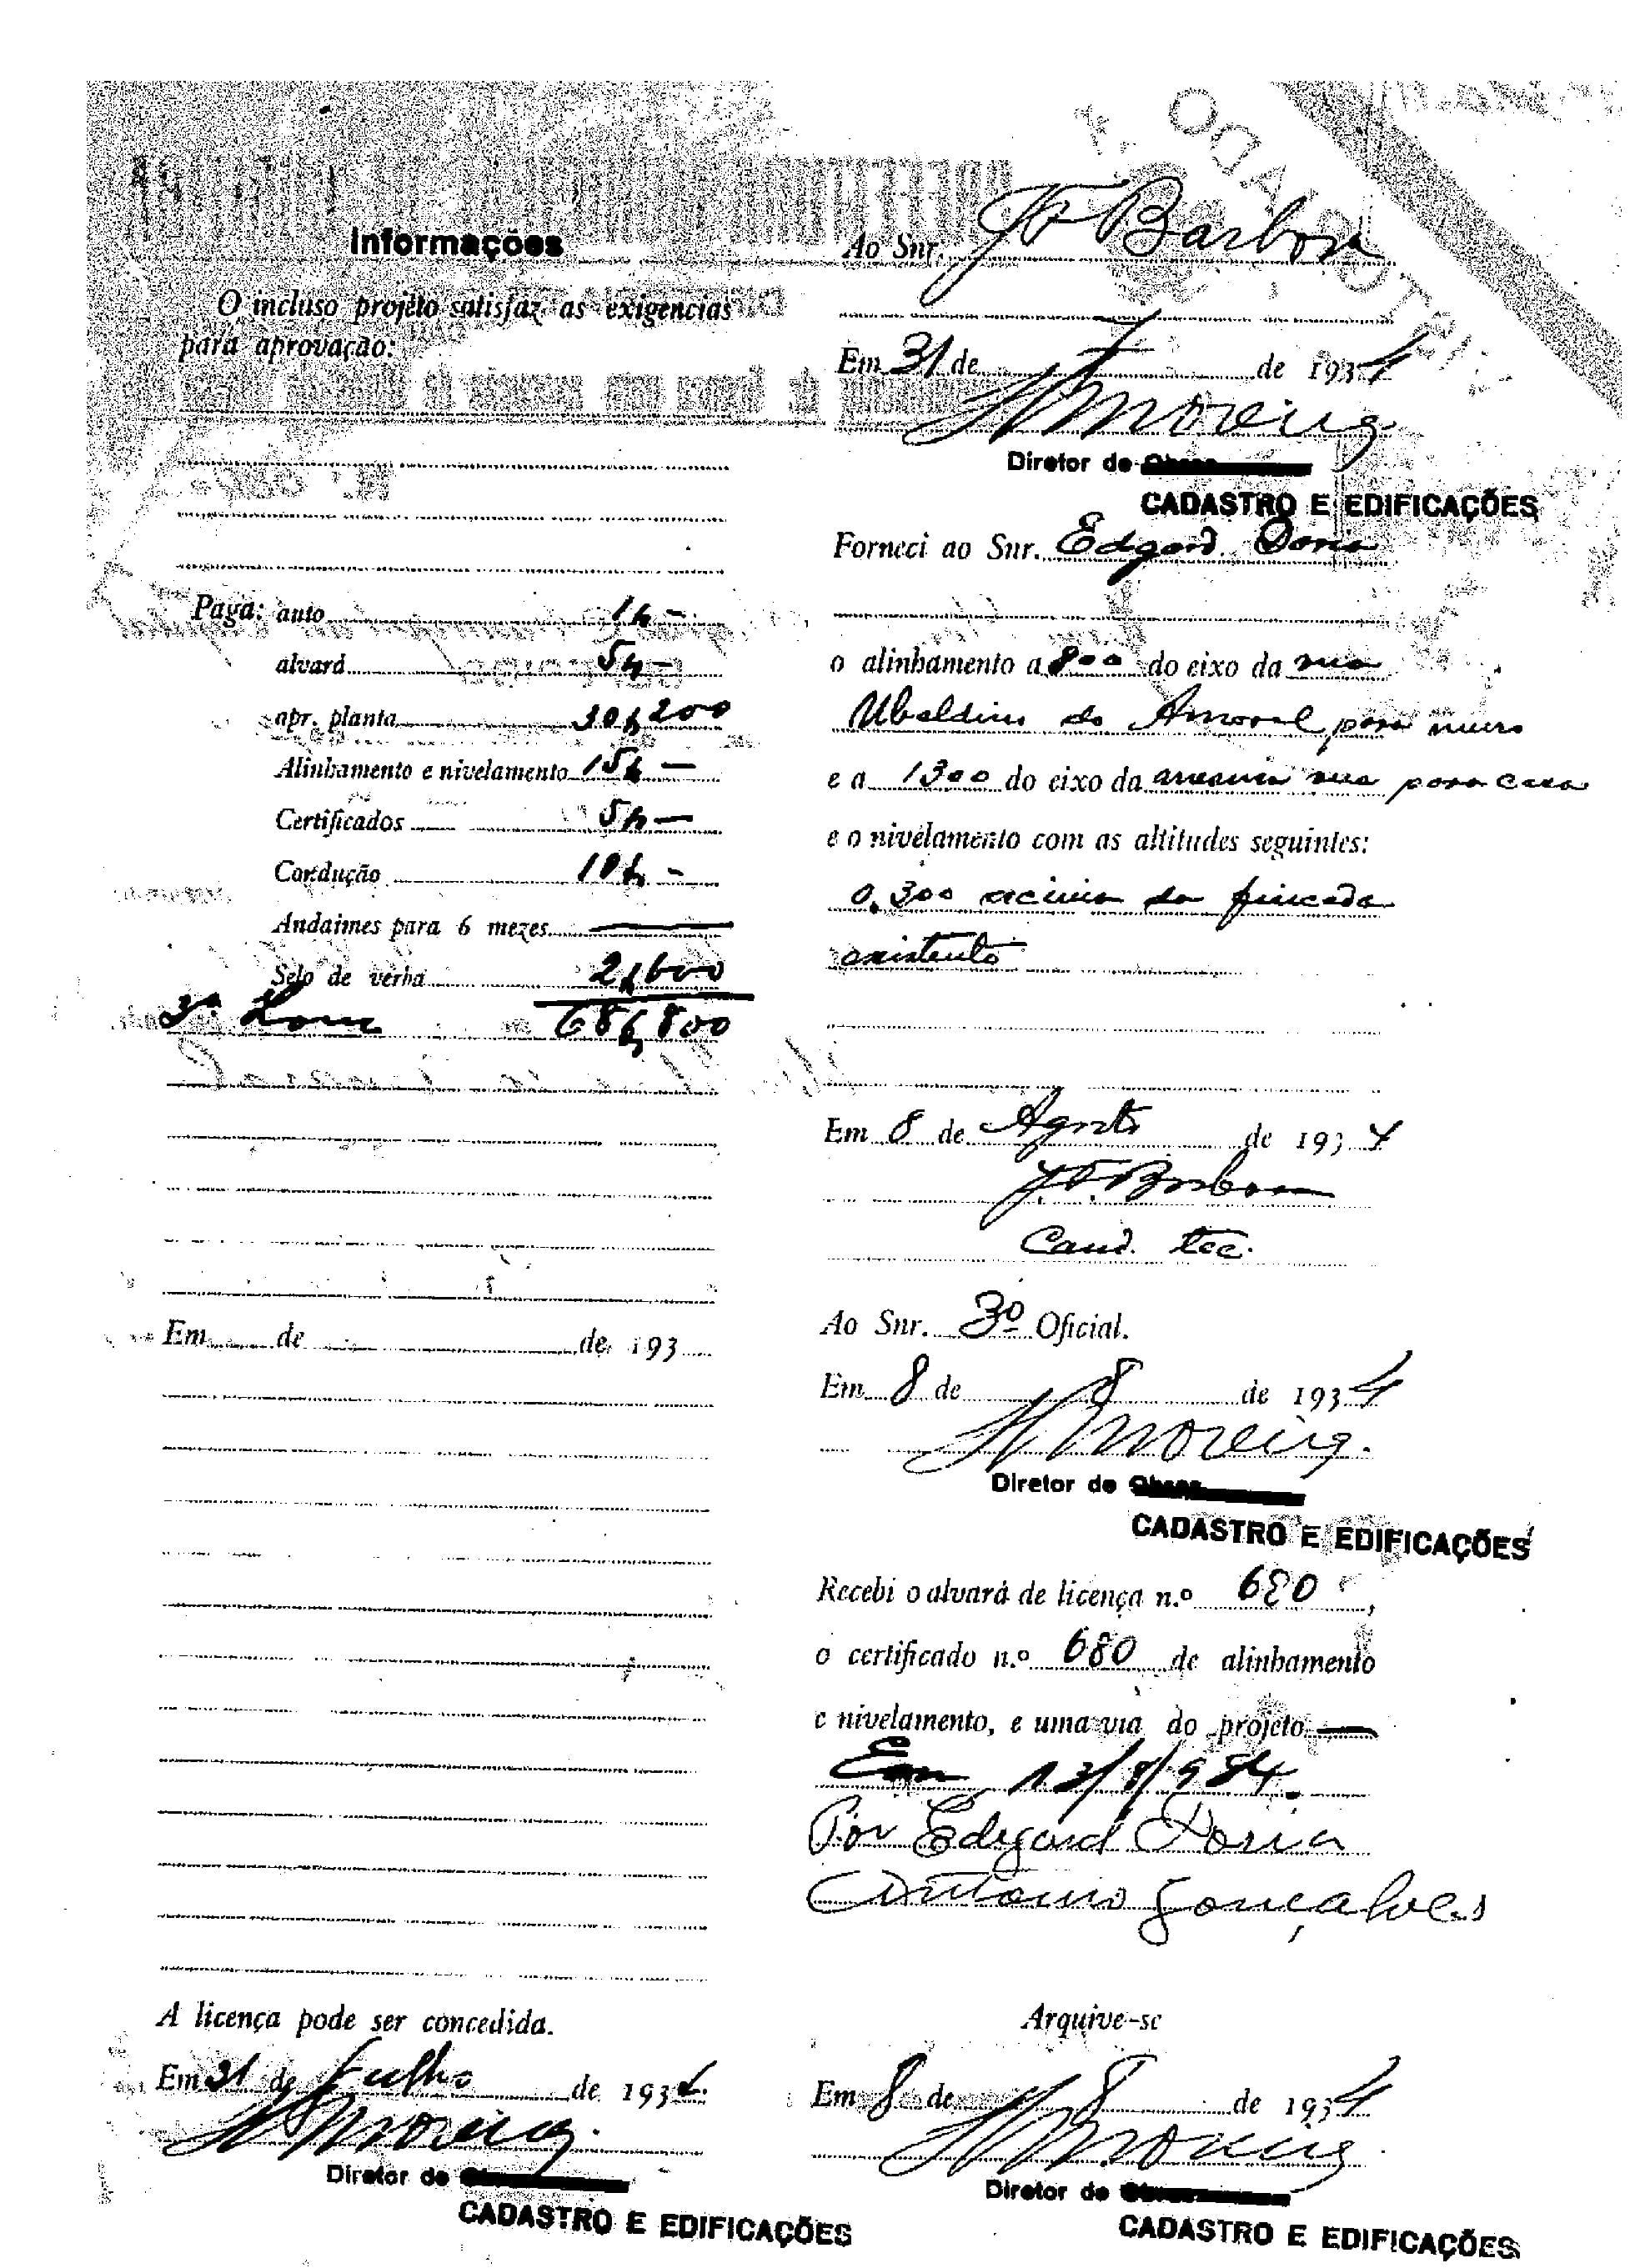 Informações
O incluso projéto satisfaz as exigencias
para aprovação:
Paga: auto 1$ -
alvará 5$ -
apr. planta 30$200
Alinhamento e nivelamento 15$ -
Certificados 5$ -
Condução 10$ -
Andaimes para 6 mezes
Selo de verba 2$600
3ª Zona 68$,800
Em de de 193
A licença pode ser concedida.
Em 31 de Julho de 1934.
Moreira
Diretor de Obras
CADASTRO E EDIFICAÇÕES
Ao Snr. J F Barbosa
Em 31 de 7 de 1934
Moreira
Diretor de Obras
CADASTRO E EDIFICAÇÕES
Forneci ao Snr. Edgard Doria
o alinhamento a 800 do eixo da rua
Ubaldino do Amaral para muro
e a 1300 do eixo da mesma rua para casa
e o nivelamento com as altitudes seguintes:
0.300 acima da
existente
Em 8 de Agosto de 1934
J.F. Barbosa
Cond. tec.
Ao Snr. 3º Oficial.
Em 8 de 8 de 1934
Moreira.
Diretor de Obras
CADASTRO E EDIFICAÇÕES
Recebi o alvará de licença n.º 680,
o certificado n.º 680 de alinhamento
e nivelamento, e uma via do projeto
Em 13/8/934.
Por Edgard Doria
Antonio Gonçalves
Arquive-se
Em 8 de 8 de 1934
Moreira
Diretor de Obras
CADASTRO E EDIFICAÇÕES